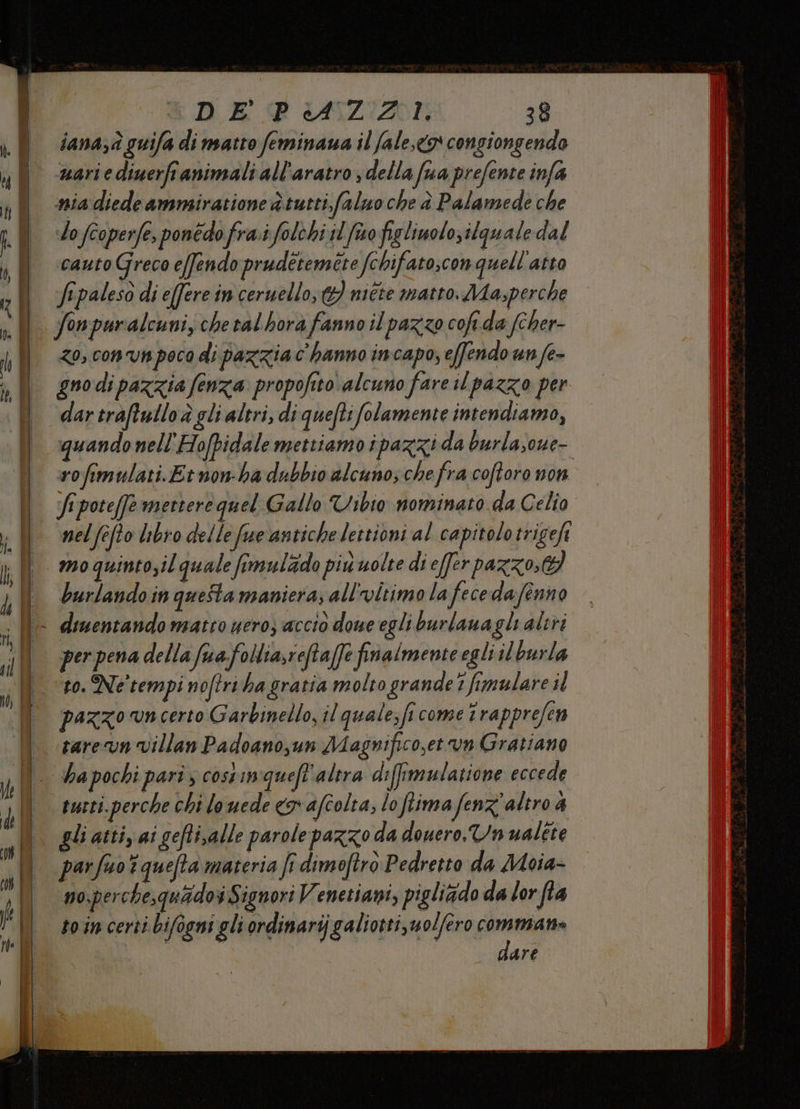 DE' PAZZI. 38
iana, à guiſa di matto ſeminaua il ſale, & congiongendo
uari e diuerſi animali all'aratro, della ſua preſente inſa
nia diede ammiratione à tutti, ſaluo che à Palamede che
lo ſcoperſe, ponēdo fra i ſolchi il ſuo figliuolo, ilquale dal
cauto Greco eſſendo prudētemēte ſchifato, con quell'atto
ſi palesò di eſſere in ceruello, & niēte matto. Ma, perche
ſon pur alcuni, che tal hora fanno il pazzo coſi da ſcher-
zo, con vn poco di pazzia c'hanno in capo, eſſendo un ſe-
gno di pazzia ſenza propoſito alcuno fare il pazzo per
dar traſtullo à gli altri, di queſti ſolamente intendiamo,
quando nell'Hoſpidale mettiamo i pazzi da burla, oue-
ro ſimulati. Et non ha dubbio alcuno, che fra coſtoro non
ſi poteſſe mettere quel Gallo Vibio nominato da Celio
nel ſeſto libro delle ſue antiche lettioni al capitolo trigeſi
mo quinto, il quale ſimulādo più uolte di eſſer pazzo, &
burlando in queſta maniera, all'vltimo la fece da ſenno
diuentando matto uero, acciò doue egli burlaua gli altri
per pena della ſua follia, reſtaſſe finalmente egli il burla
to. Ne' tempi noſtri ha gratia molto grande ī ſimulare il
pazzo vn certo Garbinello, il quale, ſi come ī rappreſen
tare vn villan Padoano, un Magnifico, et vn Gratiano
ha pochi pari, così in queſt'altra diſſimulatione eccede
tutti. perche chi lo uede & aſcolta, lo ſtima ſenz'altro à
gli atti, ai geſti, alle parole pazzo da douero. Vn ualēte
par ſuo ī queſta materia ſi dimoſtrò Pedretto da Moia-
no. perche, quādo i Signori Venetiani, pigliādo da lor ſta
to in certi biſogni gli ordinarij galiotti, uolſero comman-
dare